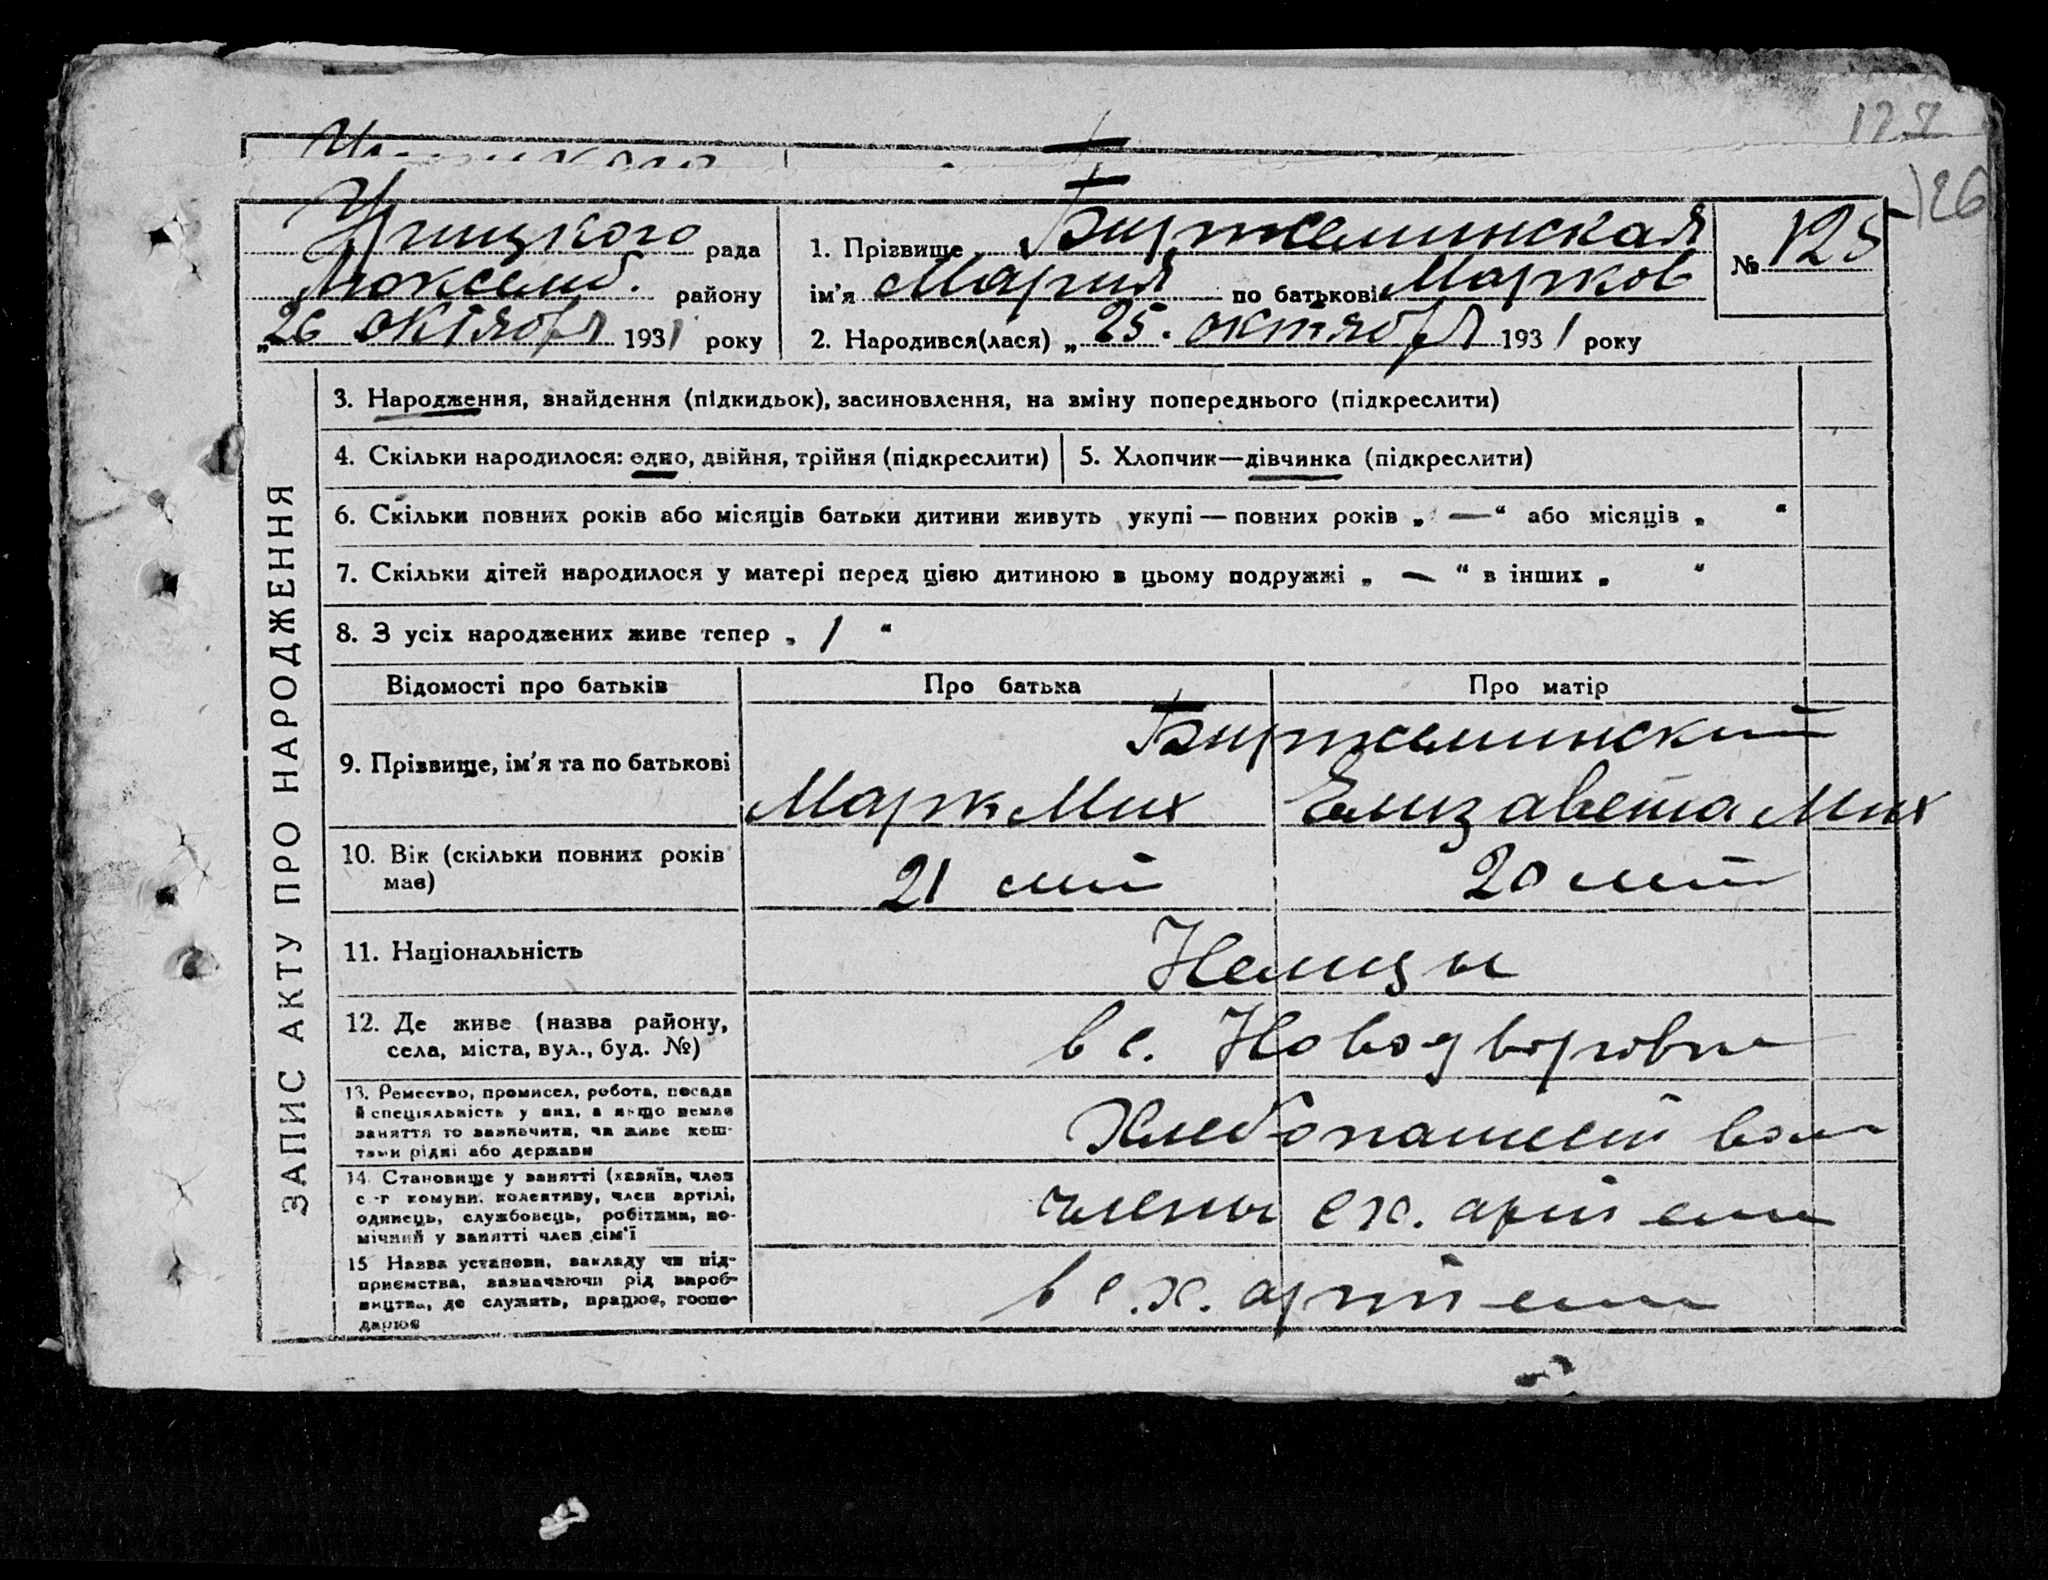 127
126
Урицкого рада
Люксемб. району
„26 октября 1931 року
1. Прізвище Биржеминская
ім'я Мария по батькові Марков
2. Народився(лася) „25. октября 1931 року
№ 125
ЗАПИС АКТУ ПРО НАРОДЖЕННЯ
3. Народження, знайдення (підкидьок), засиновлення, на зміну попереднього (підкреслити)
4. Скільки народилося: одно, двійня, трійня (підкреслити)
5. Хлопчик—дівчинка (підкреслити)
6. Скільки повних років або місяців батьки дитини живуть укупі — повних років „ — “ або місяців „ “
7. Скільки дітей народилося у матері перед цією дитиною в цьому подружжі „ — “ в інших „ “
8. З усіх народжених живе тепер „ 1 “
Відомості про батьків Про батька Про матір
9. Прізвище, ім'я та по батькові
Биржеминский
Марк Мих Елизавета Мих
10. Вік (скільки повних років
має)
21 лет 20 лет
11. Національність
Немцы
12. Де живе (назва району,
села, міста, вул., буд. №)
в с. Новодворовке
13. Ремество, промисел, робота, посада
й спеціяльність у них, а якщо немає
заняття то зазначити, чи живе кош-
тами рідні або держави
Хлебопашест вом
14. Становище у занятті (хазяїн, член
с.-г комуни, колективу, член артілі,
одинець, службовець, робітник, по-
мічний у занятті член сім'ї
члены с х. артели
15 Назва установи, закладу чи під-
приємства, зазначаючи рід вироб-
ництва, де служить, працює, госпо-
дарює
в с. х. артели